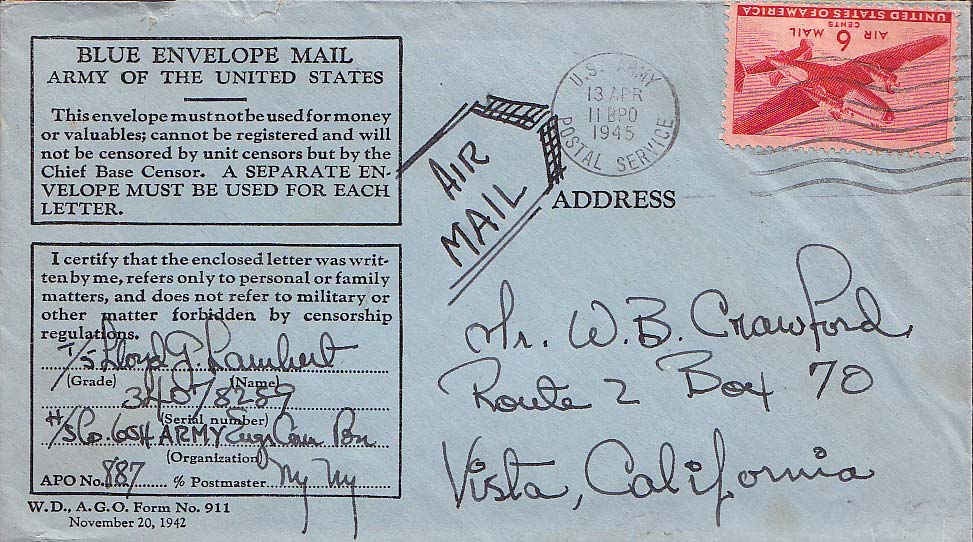 BLUE ENVELOPE MAIL
ARMY OF THE UNITED STATES
This envelope must not be used for money
or valuables; cannot be registered and will
not be censored by unit censors but by the
Chief Base Censor. A SEPARATE EN-
VELOPE MUST BE USED FOR EACH
LETTER.
I certify that the enclosed letter was writ-
ten by me, refers only to personal or family
matters, and does not refer to military or
other matter forbidden by censorship
regulations.
T/5 Lloyd G. Lambert
(Grade) (Name)
34078289
(Serial number)
H/S Co. 60th ARMY Engr Cam Bn
(Organization)
APO No. 887 % Postmaster Ny Ny
W.D., A.G.O. Form No. 911
November 20, 1942
AIR
MAIL
U.S. ARMY
13 APR
11 BPO
1945
POSTAL SERVICE
UNITED STATES OF AMERICA
AIR 6 MAIL
CENTS
ADDRESS
Mr. W.B. Crawford
Route 2 Box 70
Vista, California